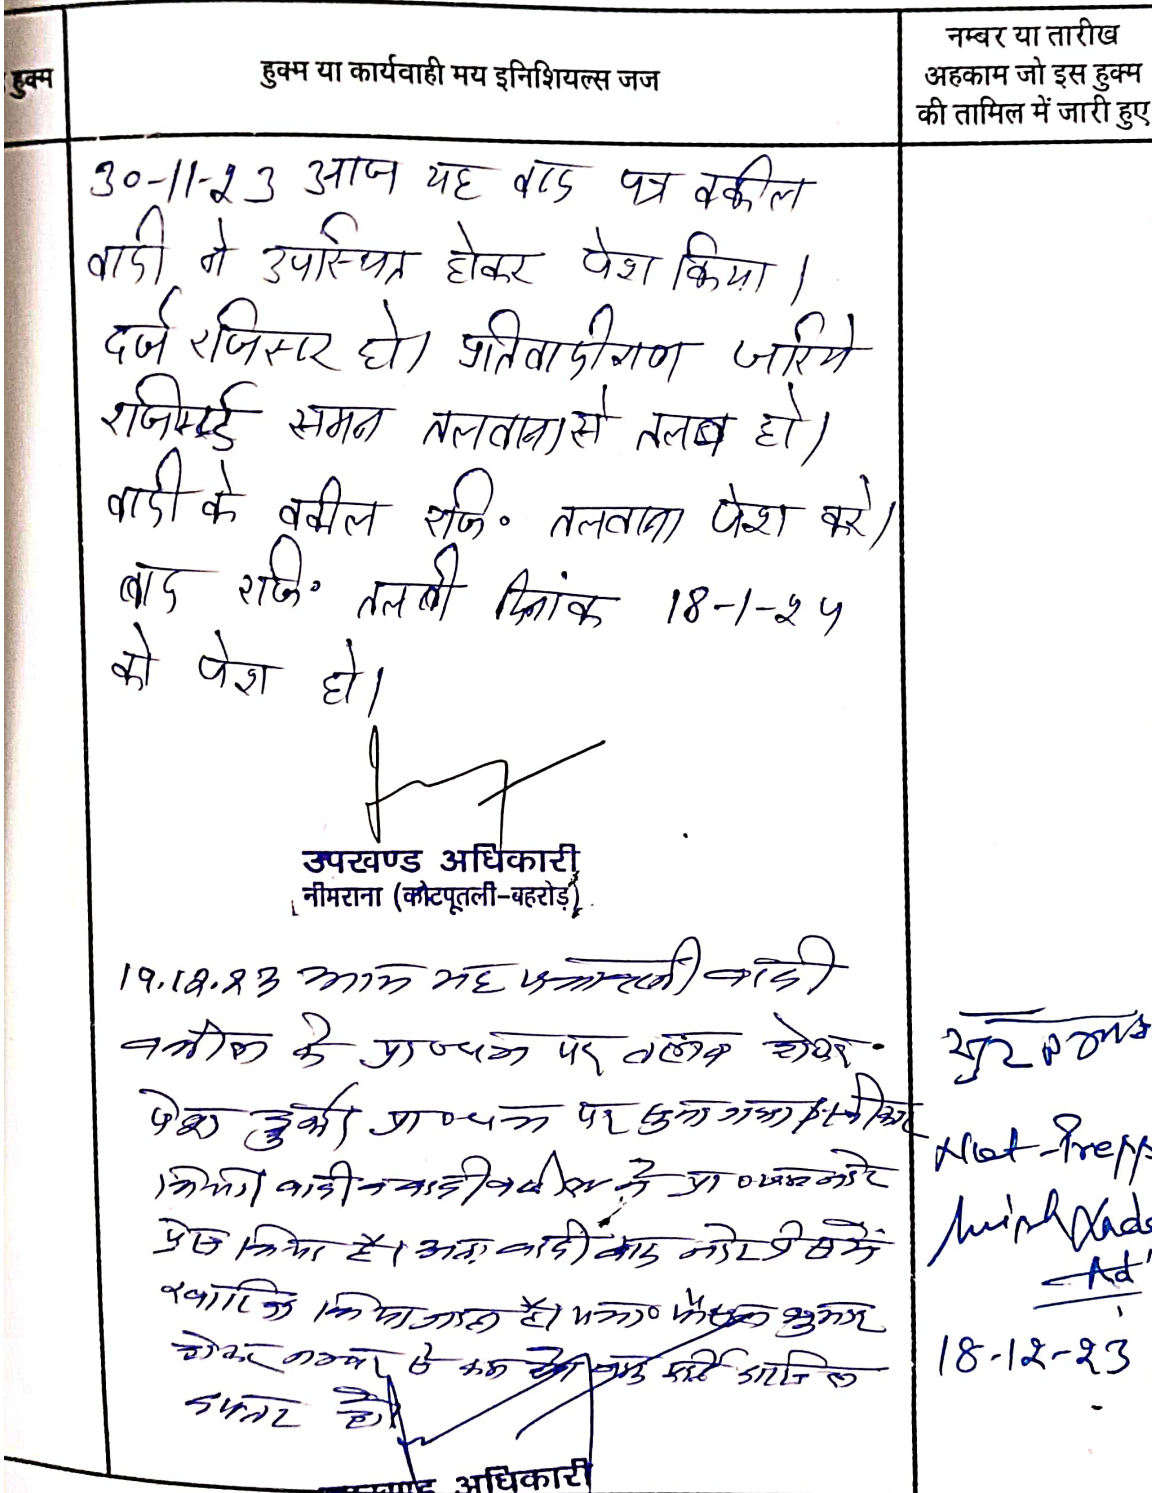 हुक्म
हुक्म या कार्यवाही मय इनिशियल्स जज
नम्बर या तारीख
अहकाम जो इस हुक्म
की तामिल में जारी हुए
30-11-23 आज यह वाद पत्र वकील
वादी ने उपस्थित होकर पेश किया।
दर्ज रजिस्टर हो। प्रतिवादीगण जरिये
रजिस्टर्ड समन तलवाना से तलब हो।
वादी के वकील रजि॰ तलवाना पेश करे।
बाद रजि॰ तलबी दिनांक 18-1-24
को पेश हो।
उपखण्ड अधिकारी
नीमराना (कोटपूतली-बहरोड़)
19.12.23 आज यह पत्रावली वादी
वकील के प्रा०पत्र पर तलब होकर
पेश हुई। प्रा०पत्र पर सुना गया।
किया। वादी व वादी वकील ने प्रा०पत्र नोट
प्रेस किया है। अतः वादी वाद नोट प्रेस में
खारिज किया जाता है। पत्रा० फैसल शुमार
होकर नम्बर से कम हो बाद पूर्ति दाखिल
दफ्तर हो।
उपखण्ड अधिकारी
Not-Press
18-12-23